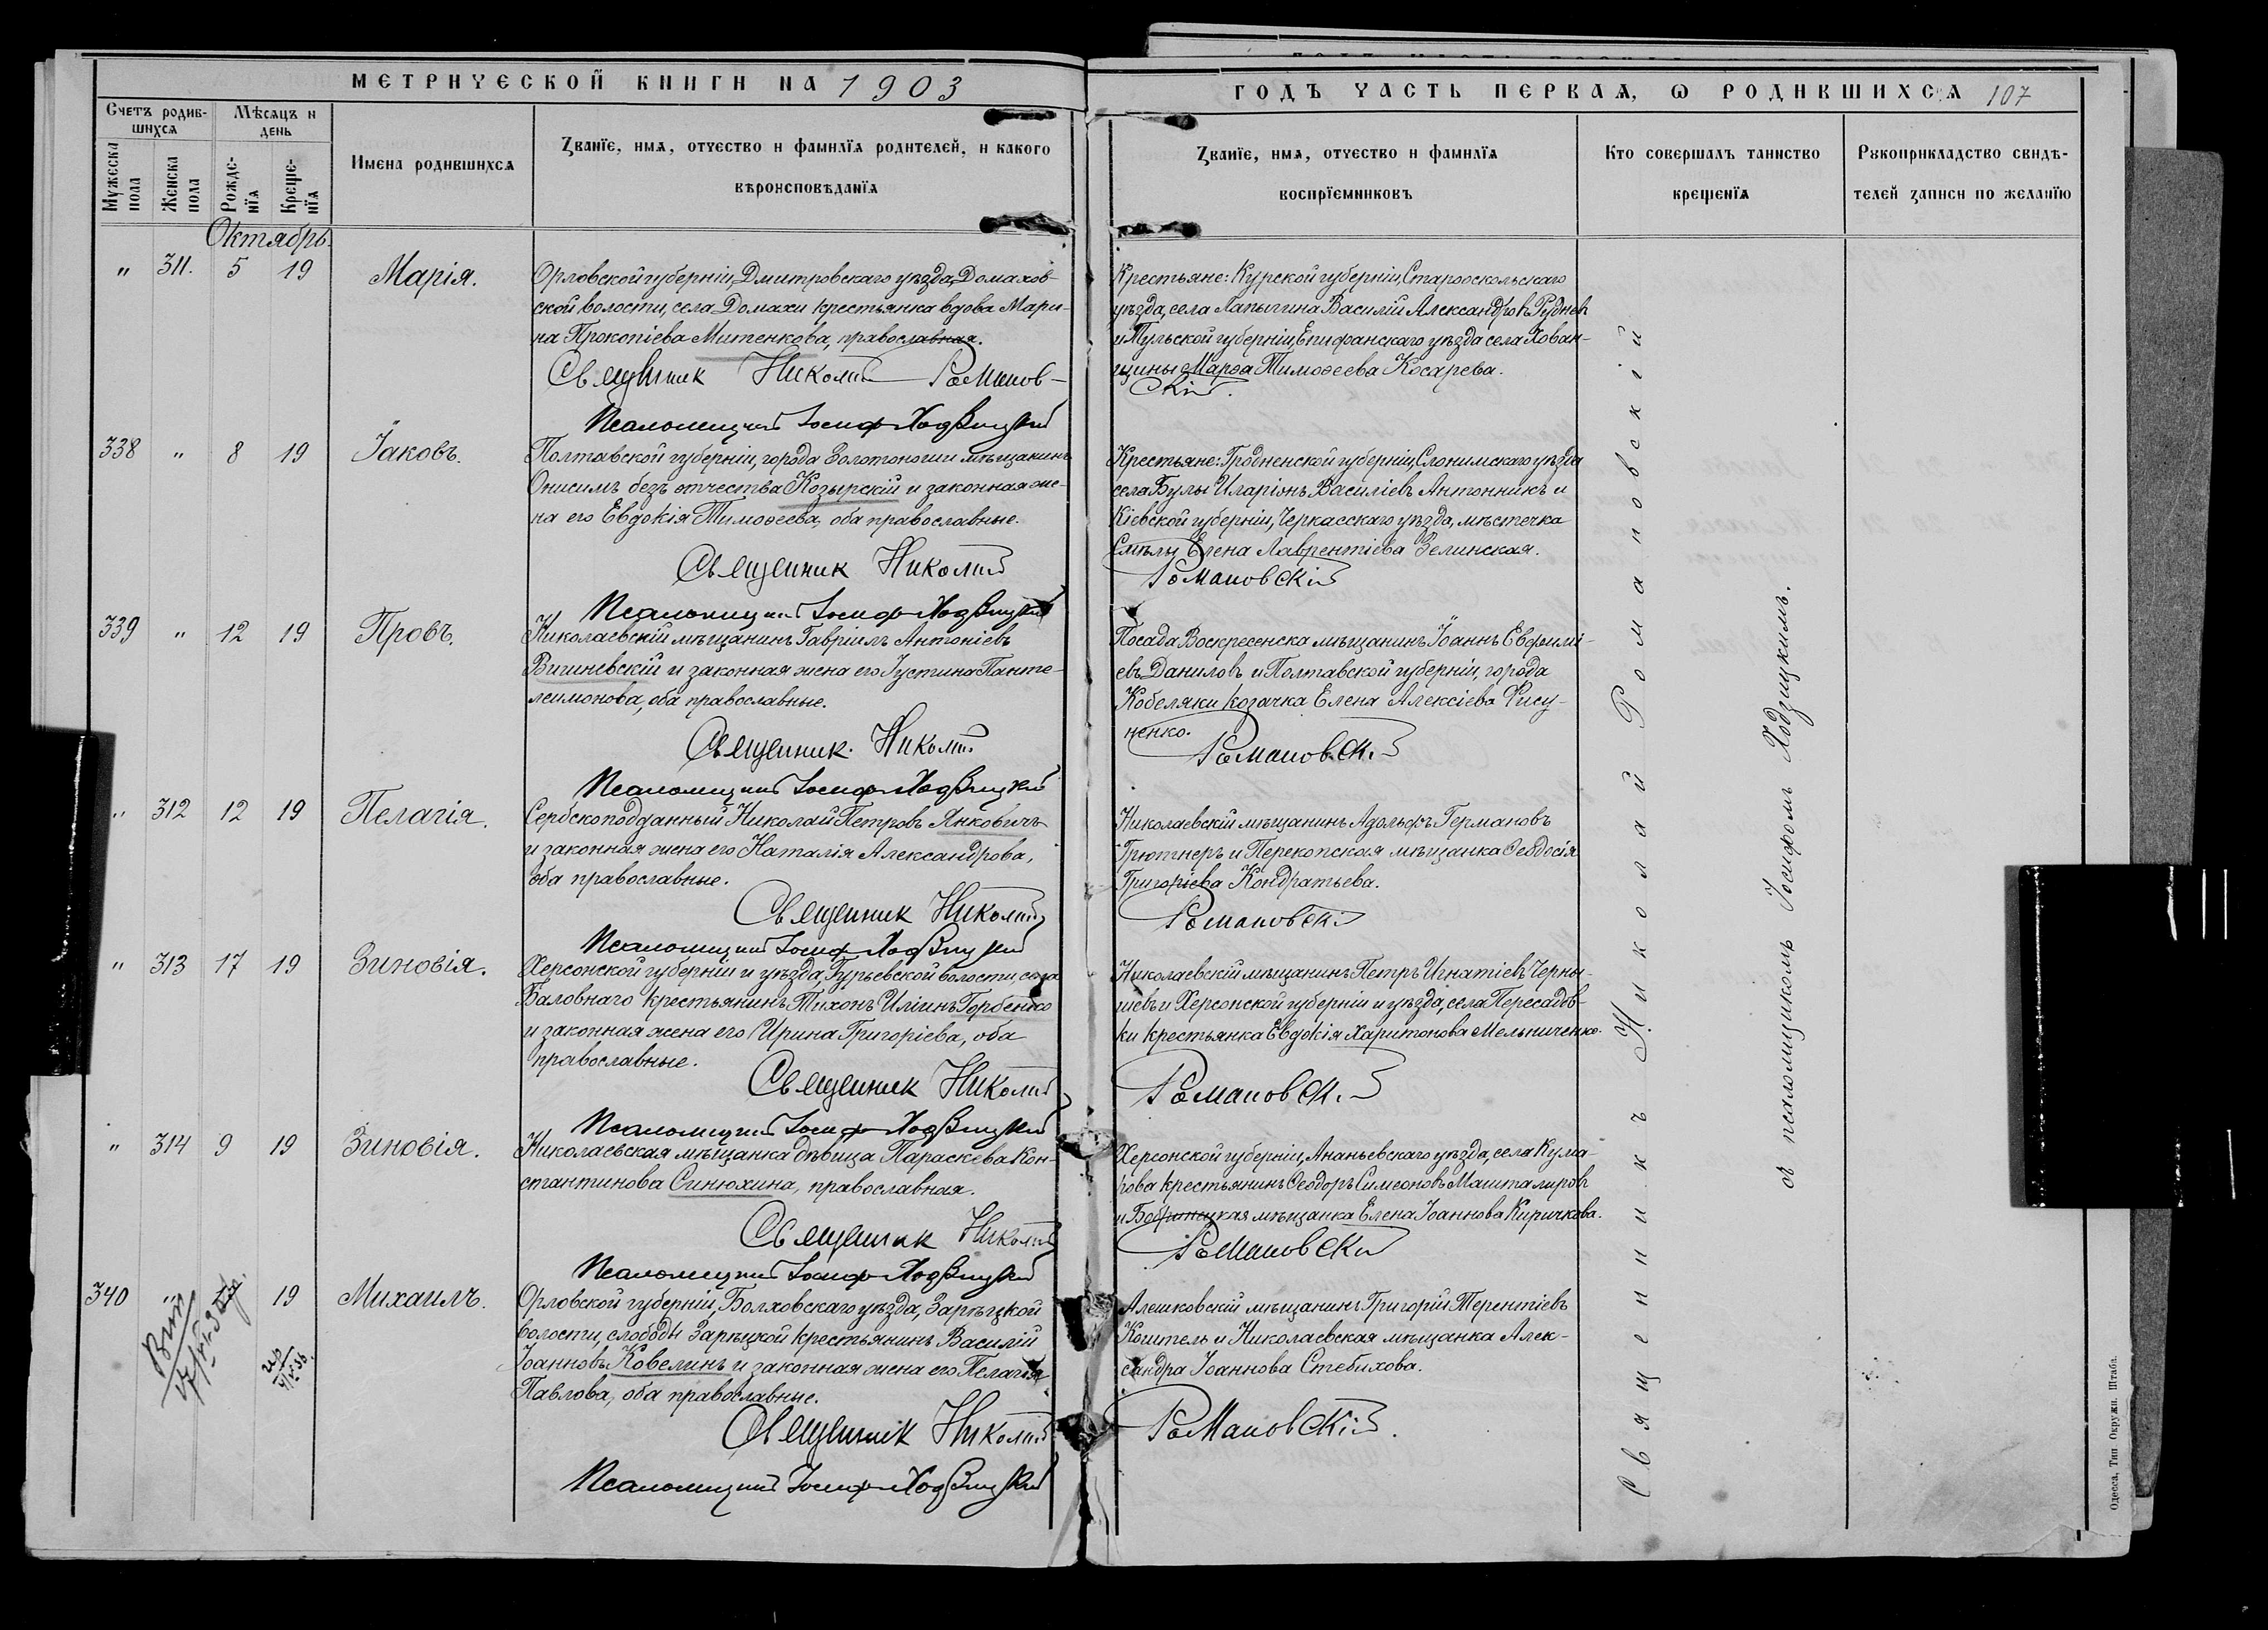 МЕТРИЧЕСКОЙ КНИГИ НА 1903
Счетъ родив-
шихся
Мѣсяцъ и
день
Мужеска
пола
Женска
пола
Рожде-
нія
Креще-
нія
Имена родившихся
Званїе, имя, отчество и фамилїя родителей, и какого
вѣроисповѣданїя
Октябрь.
" 311. 5 19 Марія.
Орловской губерніи, Дмитровскаго уѣзда, Домахов-
ской волости, села Домахи крестьянка вдова Мари-
на Прокопіева Митенкова, православная.
Священник Николай Романов-
Псаломщикъ Іосиф Ходзицкій
338 " 8 19 Іаковъ.
Полтавской губерніи, города Золотоноши мѣщанинъ
Онисимъ безъ отчества Козырскій и законная же-
на его Евдокія Тимоѳеева, оба православные.
Священник Николай
Псаломщикъ Іосиф Ходзицкій
339 " 12 19 Провъ.
Николаевскій мѣщанинъ Гавріилъ Антоніевъ
Вишневскій и законная жена его Іустина Панте-
леимонова, оба православные.
Священник Николай
Псаломщикъ Іосиф Ходзицкій
" 312 12 19 Пелагія.
Сербскоподданный Николай Петровъ Янковичъ
и законная жена его Наталія Александрова,
оба православные.
Священник Николай
Псаломщикъ Іосиф Ходзицкій
" 313 17 19 Зиновія.
Херсонской губерніи и уѣзда, Гурьевской волости, села
Баловнаго крестьянинъ Тихонъ Иліинъ Горбенко
и законная жена его Ирина Григоріева, оба
православные.
Священник Николай
Псаломщикъ Іосиф Ходзицкій
" 314 9 19 Зиновія.
Николаевская мѣщанка дѣвица Параскева Кон-
стантинова Синюхина, православная.
Священник Николай
Псаломщикъ Іосиф Ходзицкій
340 " 19 Михаилъ.
Орловской губерніи, Болховскаго уѣзда, Зарѣцкой
волости, слободы Зарѣцкой крестьянинъ Василій
Іоанновъ Ковелинъ и законная жена его Пелагія
Павлова, оба православные.
Священник Николай
Псаломщикъ Іосиф Ходзицкій
ГОДЪ ЧАСТЬ ПЕРВАЯ, Ѡ РОДИВШИХСЯ 107
Званїе, имя, отчество и фамилїя
воспрїемниковъ
Кто совершалъ таинство
крещенїя
Рꙋкоприкладство свидѣ-
телей записи по желанїю
Крестьяне: Курской губерніи, Старооскольскаго
уѣзда, села Лапыгина Василій Александровъ Рудневъ
и Тульской губерніи, Епифанскаго уѣзда села Хован-
щины Марѳа Тимоѳеева Косарева.
скій.
Крестьяне: Гродненской губерніи, Слонимскаго уѣзда
села Булы Иларіонъ Василіевъ Антонникъ и
Кіевской губерніи, Черкасскаго уѣзда, мѣстечка
Смѣлы Елена Лаврентіева Зелинская.
Романовскій
Посада Воскресенска мѣщанинъ Іоаннъ Евѳимі-
евъ Даниловъ и Полтавской губерніи, города
Кобеляки козачка Елена Алексіева Фису-
ненко.
Романовскій
Николаевскій мѣщанинъ Адольфъ Германовъ
Грютнеръ и Перекопская мѣщанка Ѳеодосія
Григоріева Кондратьева.
Романовскій
Николаевскій мѣщанинъ Петръ Игнатіевъ Черны-
шевъ и Херсонской губерніи и уѣзда, села Пересадов-
ки крестьянка Евдокія Харитонова Мельниченко.
Романовскій
Херсонской губерніи, Ананьевскаго уѣзда, села Кума-
рова крестьянинъ Ѳеодоръ Симеоновъ Машталировъ
и Бобринецкая мѣщанка Елена Іоаннова Киричкова.
Романовскій
Алешковскій мѣщанинъ Григорій Терентіевъ
Коштель и Николаевская мѣщанка Алек-
сандра Іоаннова Стебихова.
Романовскій.
Священникъ Николай Романовскій
съ псаломщикомъ Іосифомъ Ходзицкимъ.
Одесса, Тип. Окружн. Штаба.